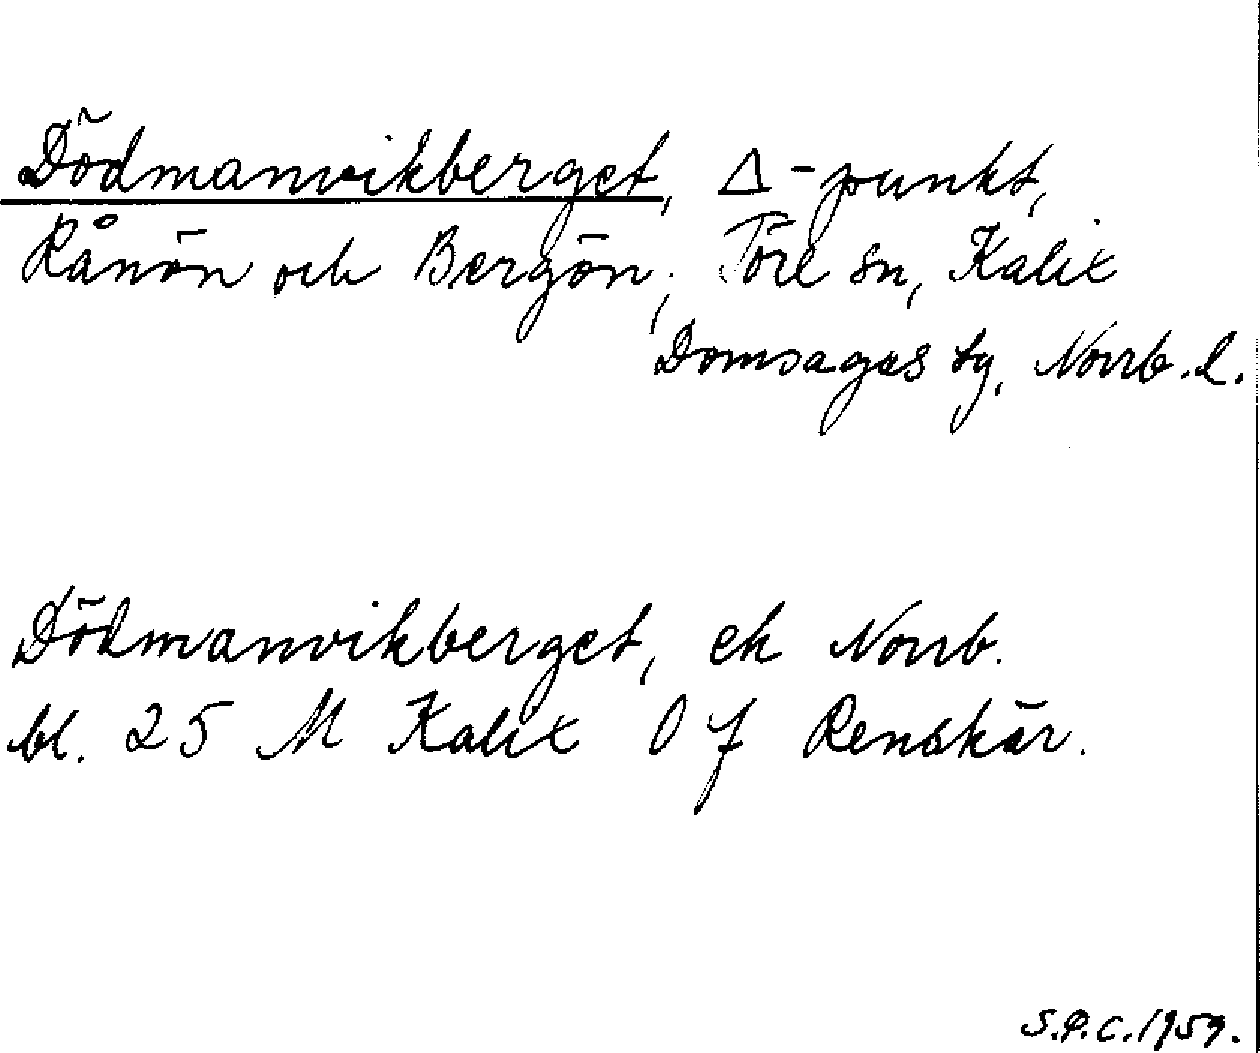 Dödmanvikberget, Δ-punkt,
Rånön och Bergön, Töre sn, Kalix
Domsagas tg, Norrb. l.
Dödmanvikberget, ek Norrb.
bl. 25 M Kalix 0 f Renskär.
S.P.C. 1959.